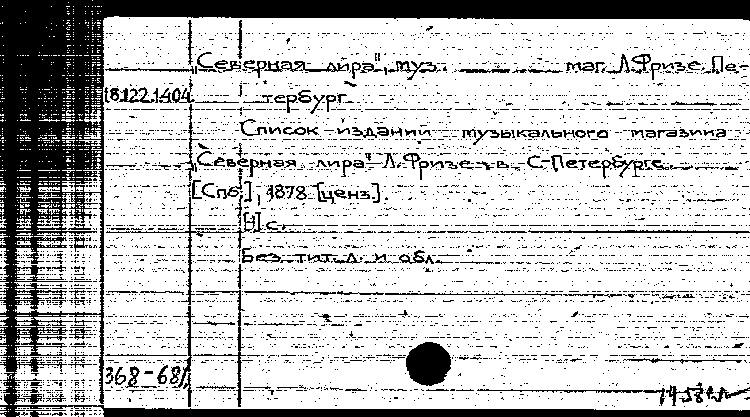 „Северная лира", муз. маг. Л. Фризе. Пе-
18.122.1404 тербург
Список изданий музыкального магазина
„Северная лира" Л. Фризе в С-Петербурге.
[Спб.], 1878 [ценз].
[4] с.
Без тит. л. и обл.
368-68